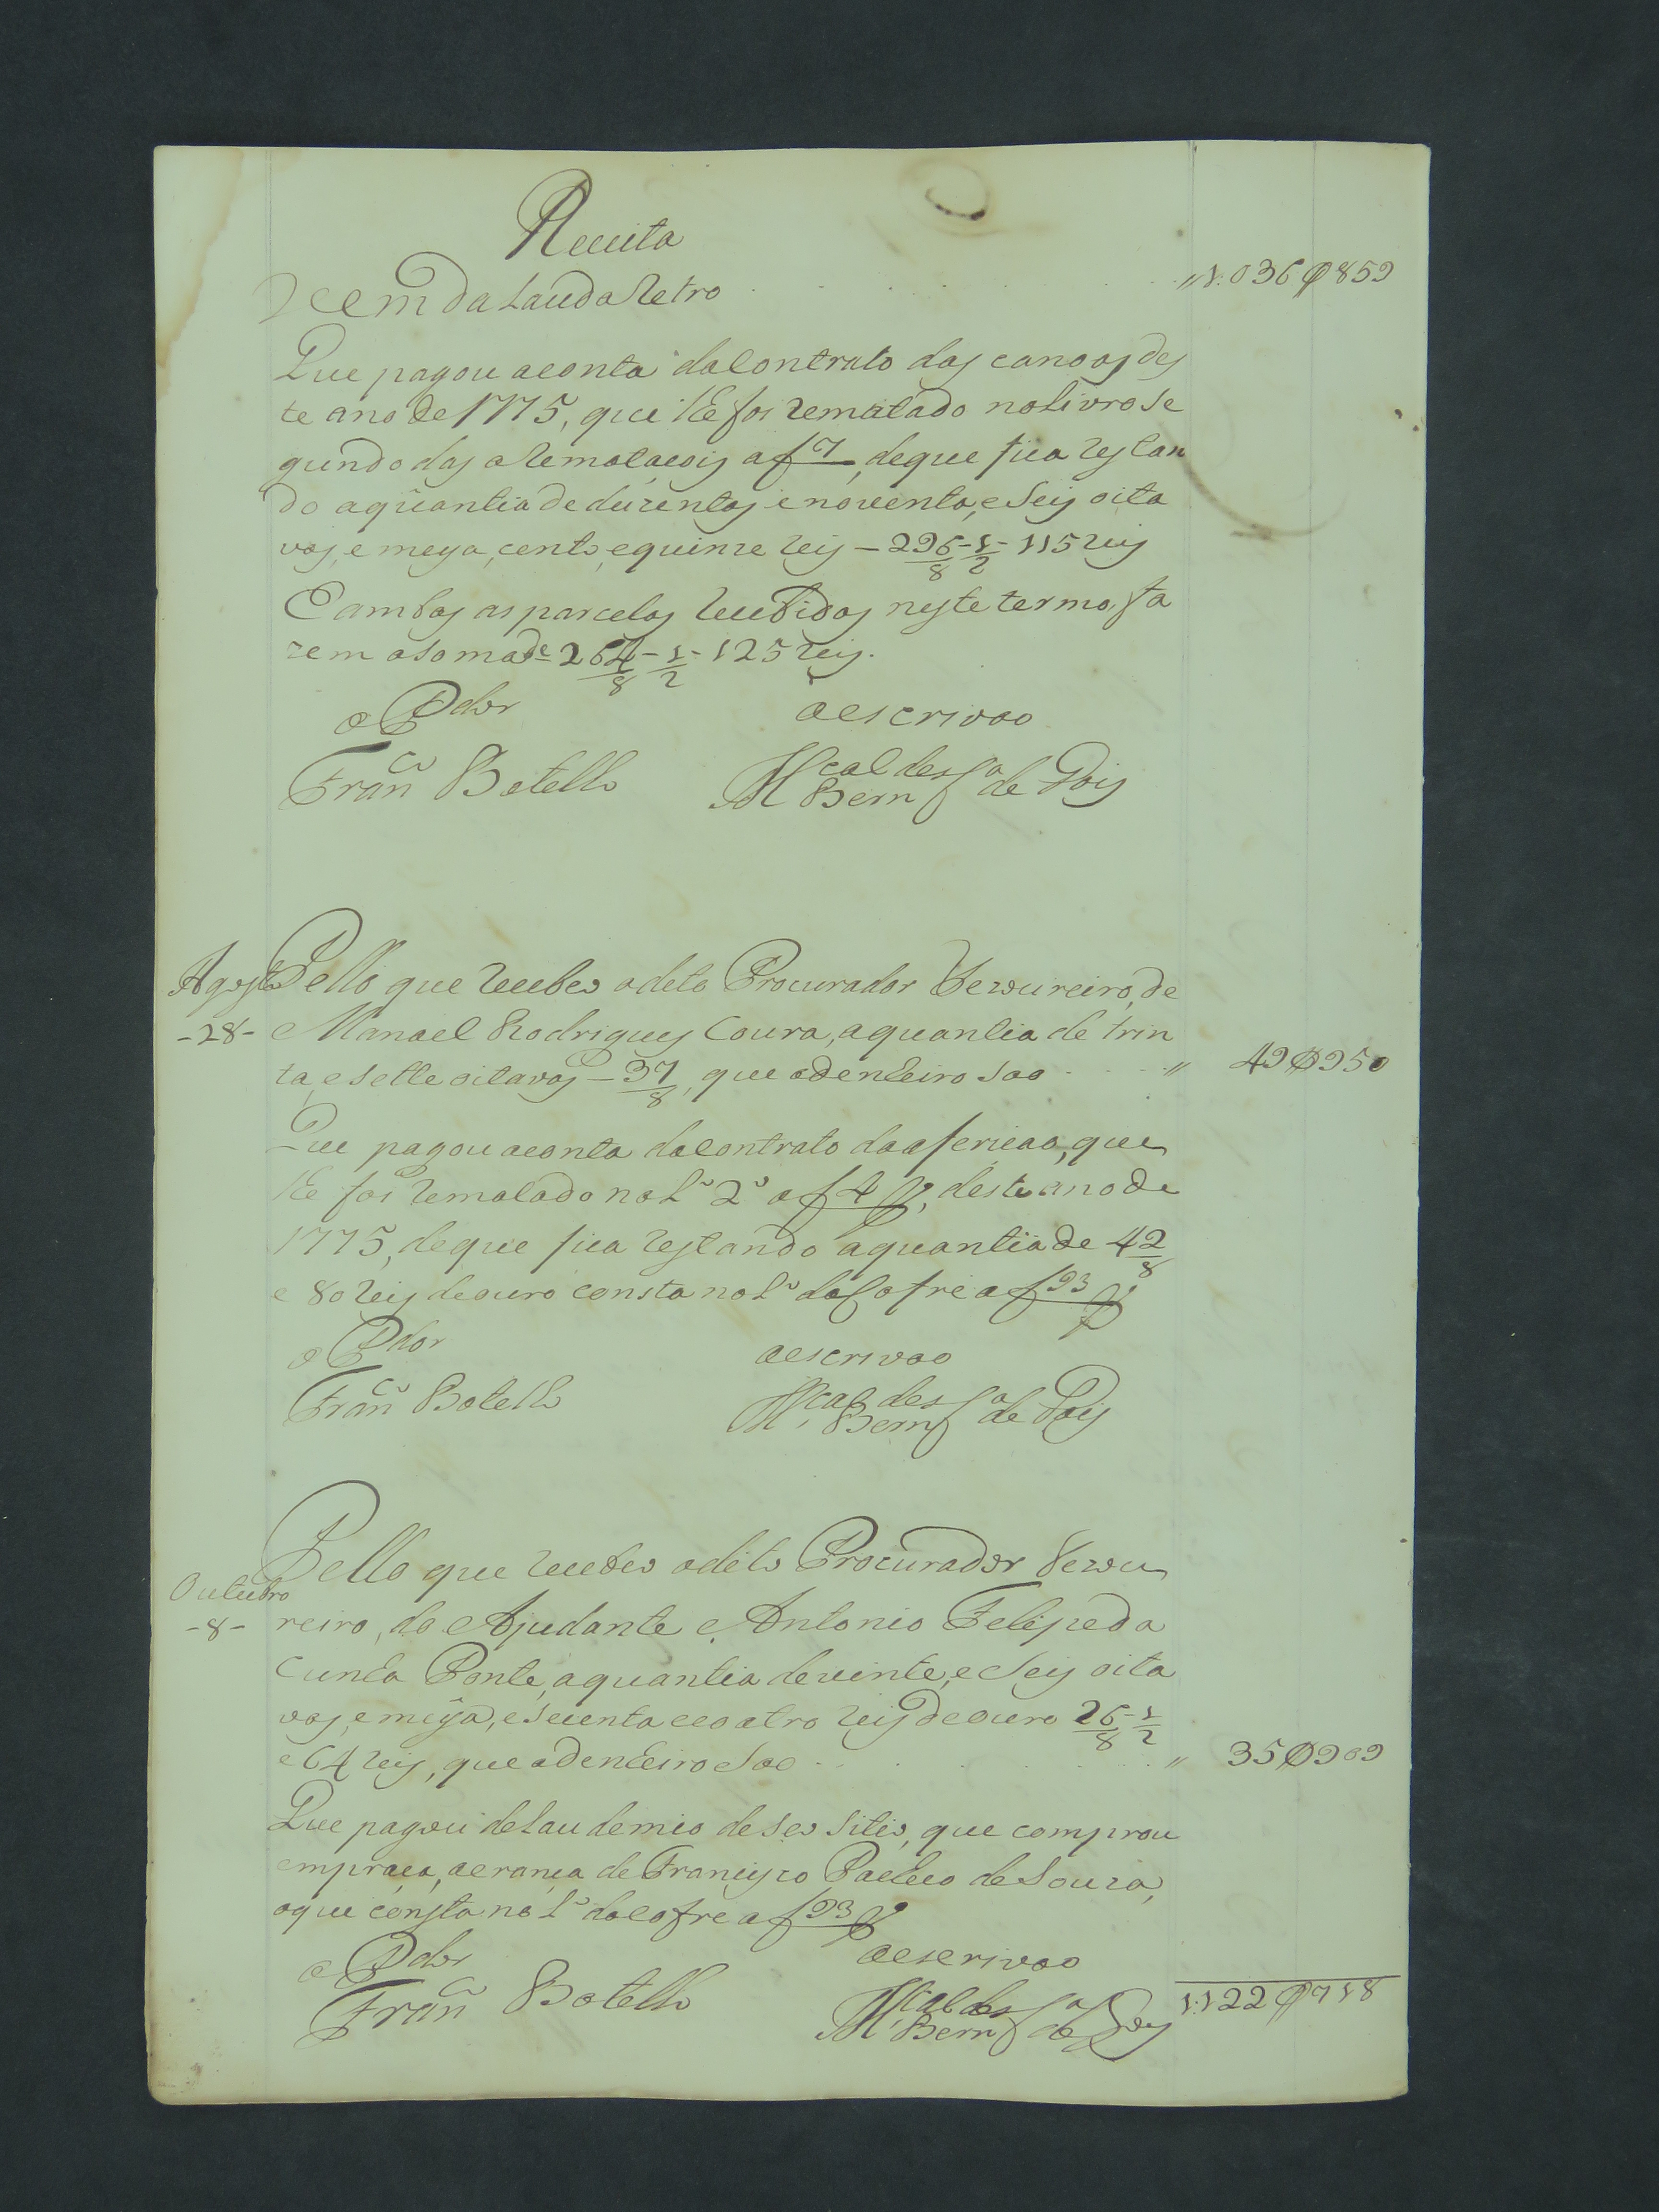 Receita
Vem da Lauda Retro . . . . . . . . . . „ 1:036$859
Que pagou aconta docontrato das canoas des
te ano de 1775, que lhe foi rematado nolivro se
gundo das aRematacois af 7, deque fica restan
do aquantia de duzentas e noventa, e Seis oita
vas, e meya, cento, equinze reis – 296/8 - 1/2 - 115 reis
E ambas as parcelas recebidas neste termo, fa
zem asoma de 264/8 - 1/2 - 125 reis.
o Pdor oescrivao
Franco Botelho Mel Caldes Bern de Gois
Agosto Pello que recebeo odito Procurador Thezoureiro, de
- 28 - Manoel Rodrigues Coura, aquantia de trin
ta, e sette oitavas – 37/8, que adenheiro Sao . . . . „ 49$950
Que pagou aconta docontrato daafericao, que
lhe foi rematado no Lo 2o af 4 v, deste ano de
1775, deque fica restando aquantia de 42/8
e 80 reis deouro consta no Lo do Cofre a f 93 v
o Pdor oescrivao
Franco Botelho Mel Caldes Bern de Gois
Pello que recebeo odito Procurador Thezou
Outubro
- 8 - reiro, do Ajudante Antonio Felipe da
Cunha Ponte, aquantia devinte, e Seis oita
vas, e meya, e secenta ecoatro reis De ouro 26/8 - 1/2
e 64 reis, que adenheiro Sao . . . . . „ 35$909
Que pagou delaudemio de seo sitio, que comprou
empraça, aerança de Francisco Pacheco de Souza,
oque consta no Lo docofre a f 93 v
o Pdor oescrivao
Franco Botelho Mel Caldes Bern de Gois 1:122$718